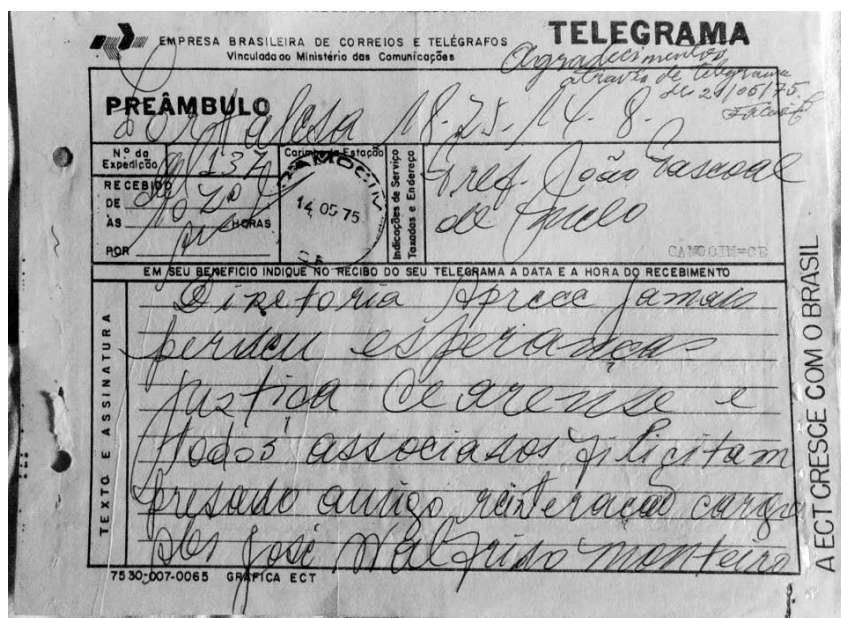 EMPRESA BRASILEIRA DE CORREIOS E TELÉGRAFOS
Vinculada ao Ministério das Comunicações
TELEGRAMA
Agradecimentos
através de telegrama
de 21/05/75.
PREÂMBULO
Fortalesa 18-25-14-8-
N.º da Expedição 137
Carimbo da Estação
CAMOCIM
14 05 75
RECEBIDO
DE
ÀS HORAS
POR
Indicações de Serviço
Taxadas e Endereço
Pref. João Pascoal
de Melo
CAMOCIM=CE
EM SEU BENEFICIO INDIQUE NO RECIBO DO SEU TELEGRAMA A DATA E A HORA DO RECEBIMENTO
TEXTO E ASSINATURA
Diretoria Aprece jamais
perdeu esperanças
justiça Cearense e
todos associados filicitam
presado amigo reinteração cargo
José Walfrido Monteiro
7530-007-0065 GRÁFICA ECT
A ECT CRESCE COM O BRASIL